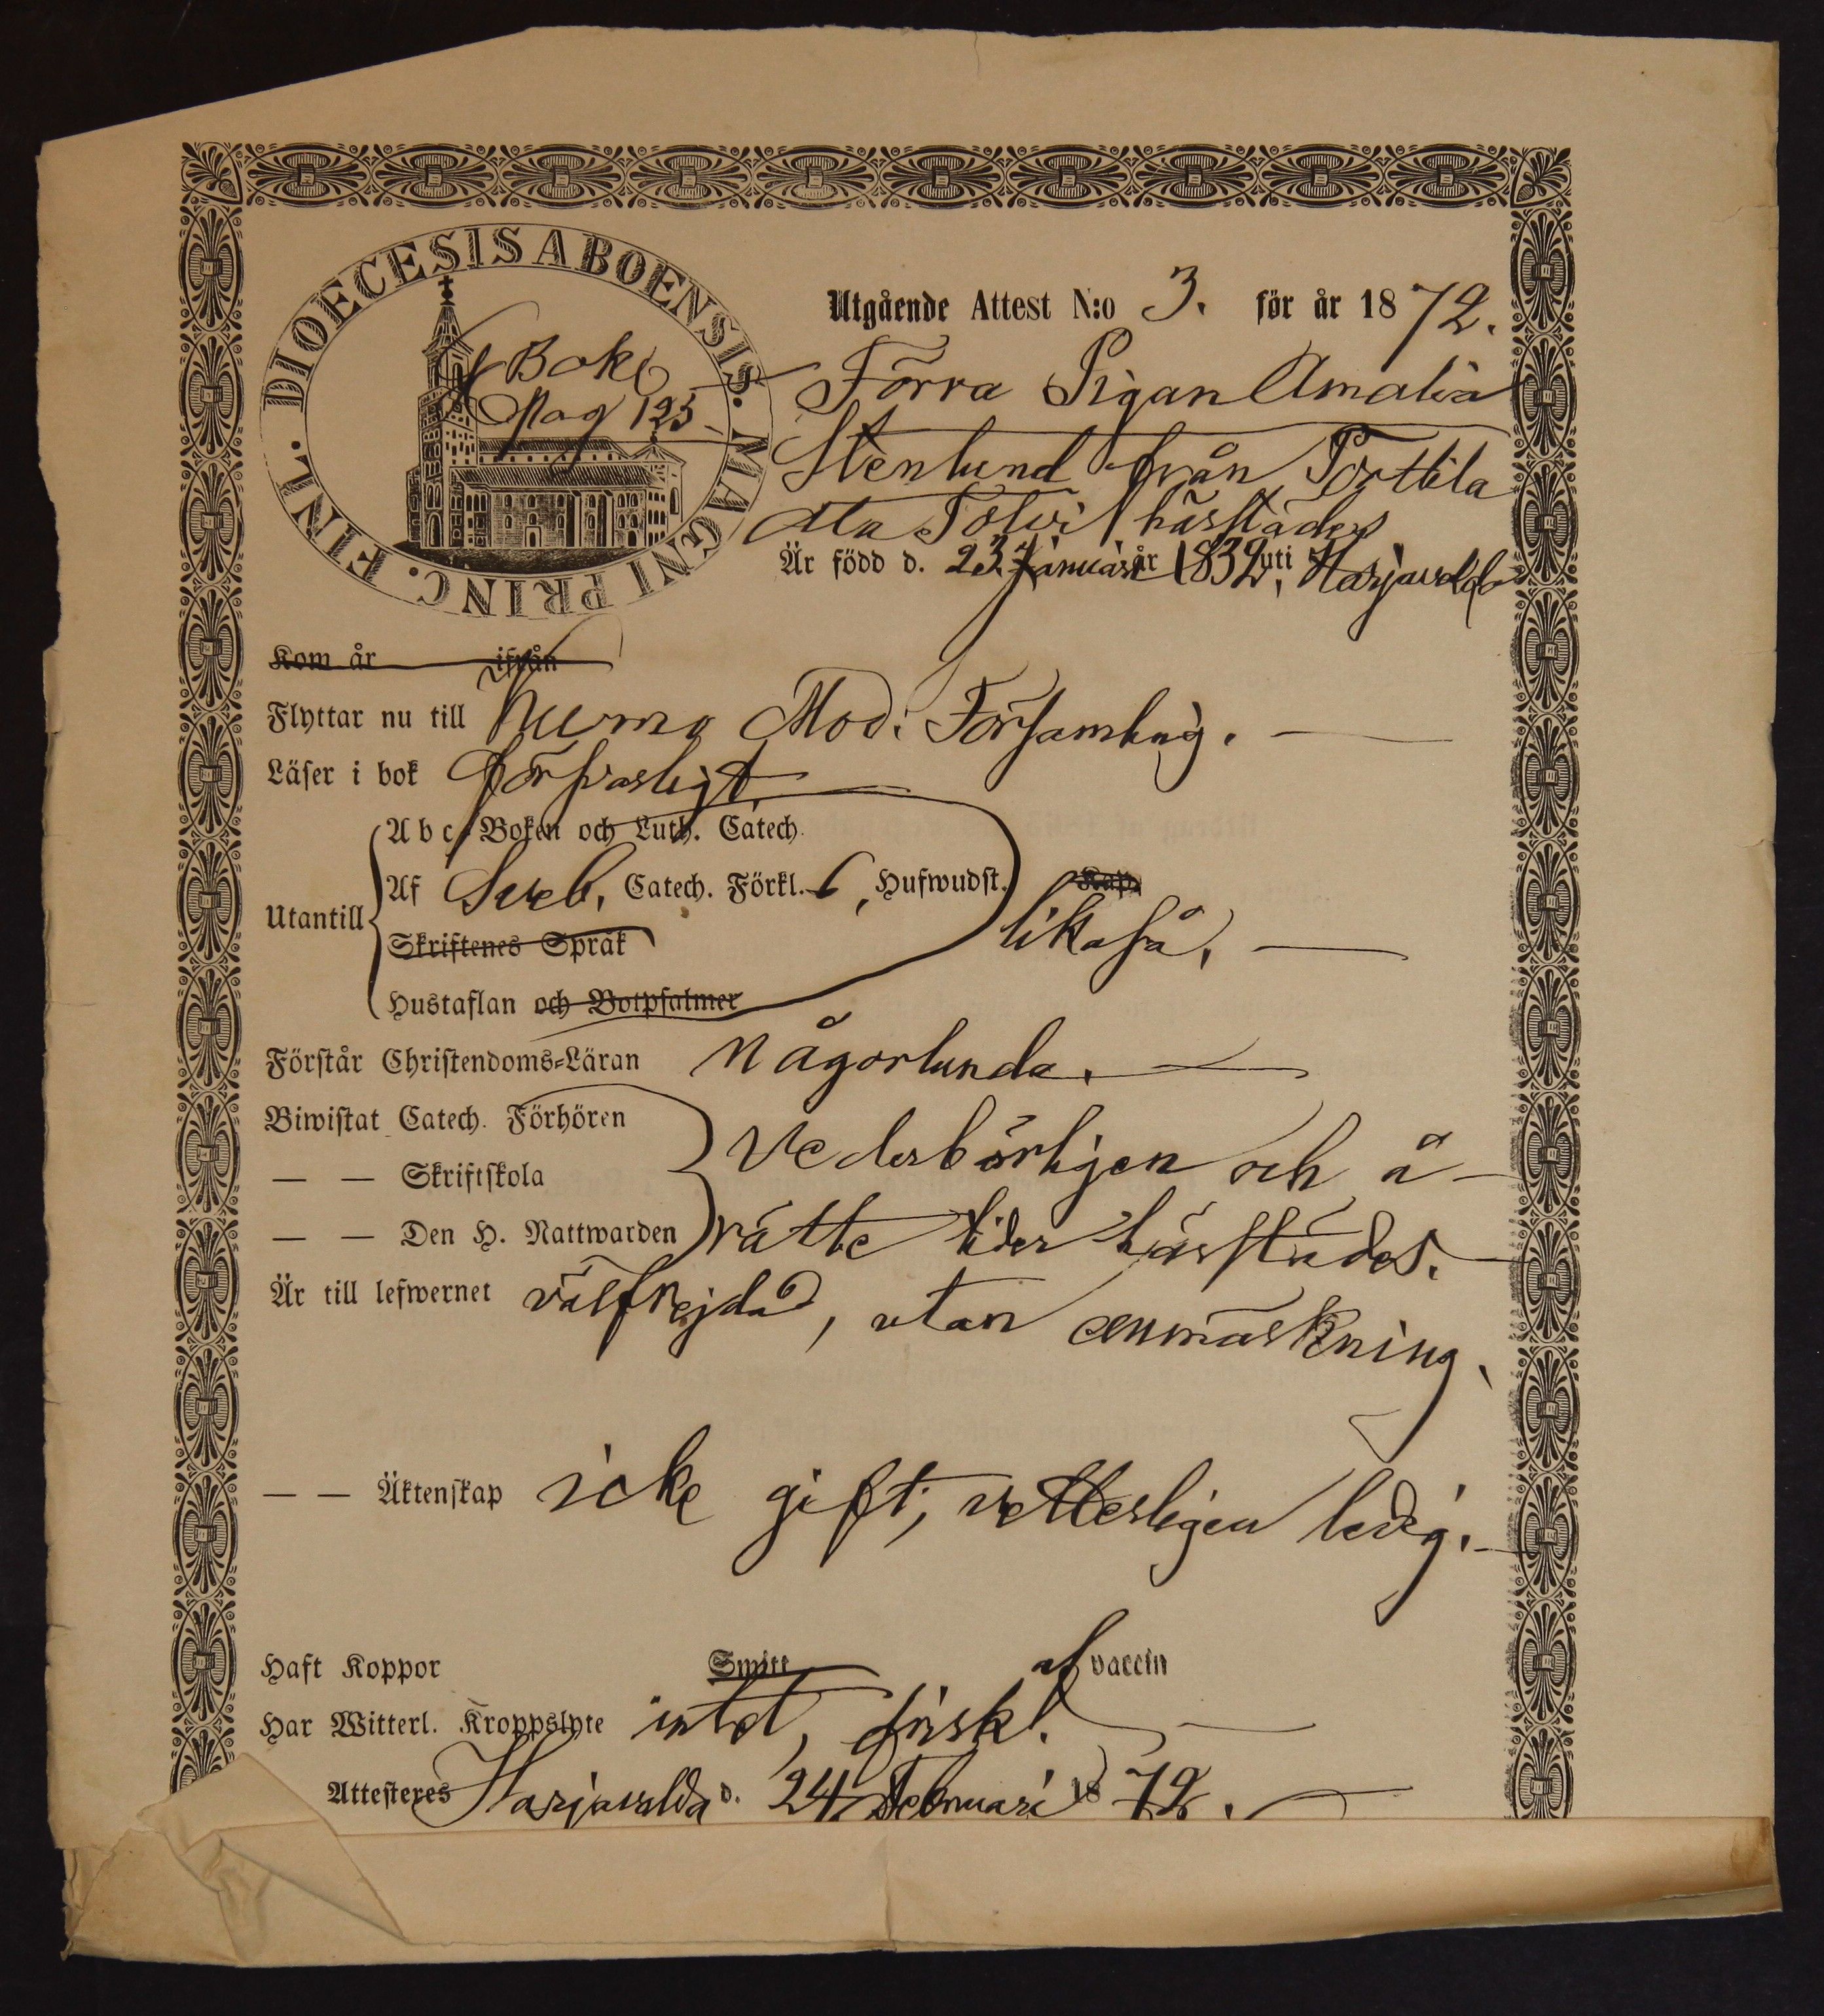 DIOECESIS ABOENSIS. MAGNI PRINC. FINL.
Boks
Pag 125.
Utgående Attest N:o 3. för år 1872.
Förra Pigan Amalia
Stenlund från Torttila
Ala Tolvi härstädes
Är född d. 23 Januari år 1832, uti Harjavalda
Kom år ifrån
Flyttar nu till Kumo Mod. Församling.
Läser i bok försvarligt
Abc-Boken och Luth. Catech.
Af Sveb. Catech. Förkl. 6, Hufwudst. Kap.
Utantill
likaså.
Skriftenes Språk
Hustaflan och Botpsalmer
Förstår Christendoms-Läran någorlunda.
Biwistat Catech. Förhören
— — Skriftskola
vederbörligen och å
— — Den H. Nattwarden rätte tider härstädes.
Är till lefwernet välfrejdad, utan anmärkning.
— — Äktenskap icke gift, vetterligen ledig.
Haft Koppor Smitt af vaccin
Har Witterl. Kroppslyte intet, frisk.
Attesteres Harjavalda d. 24 Februari 1872.